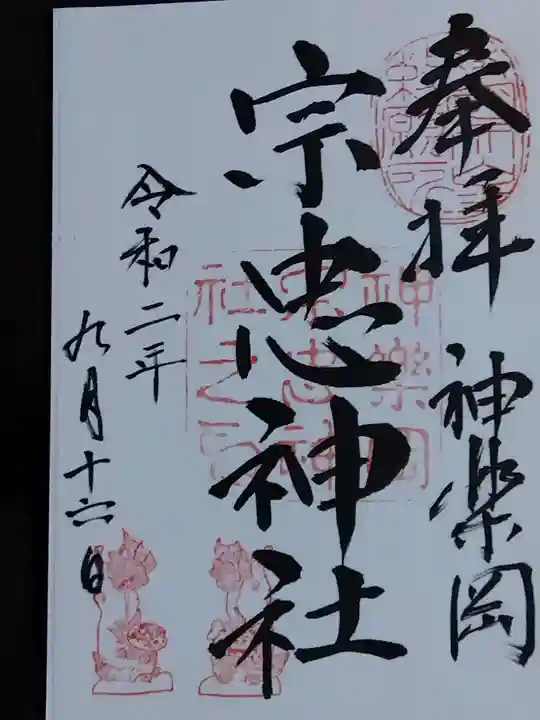 奉拝
神楽岡
宗忠神社
神樂岡
宗忠神
社之印
令和二年
九月十六日